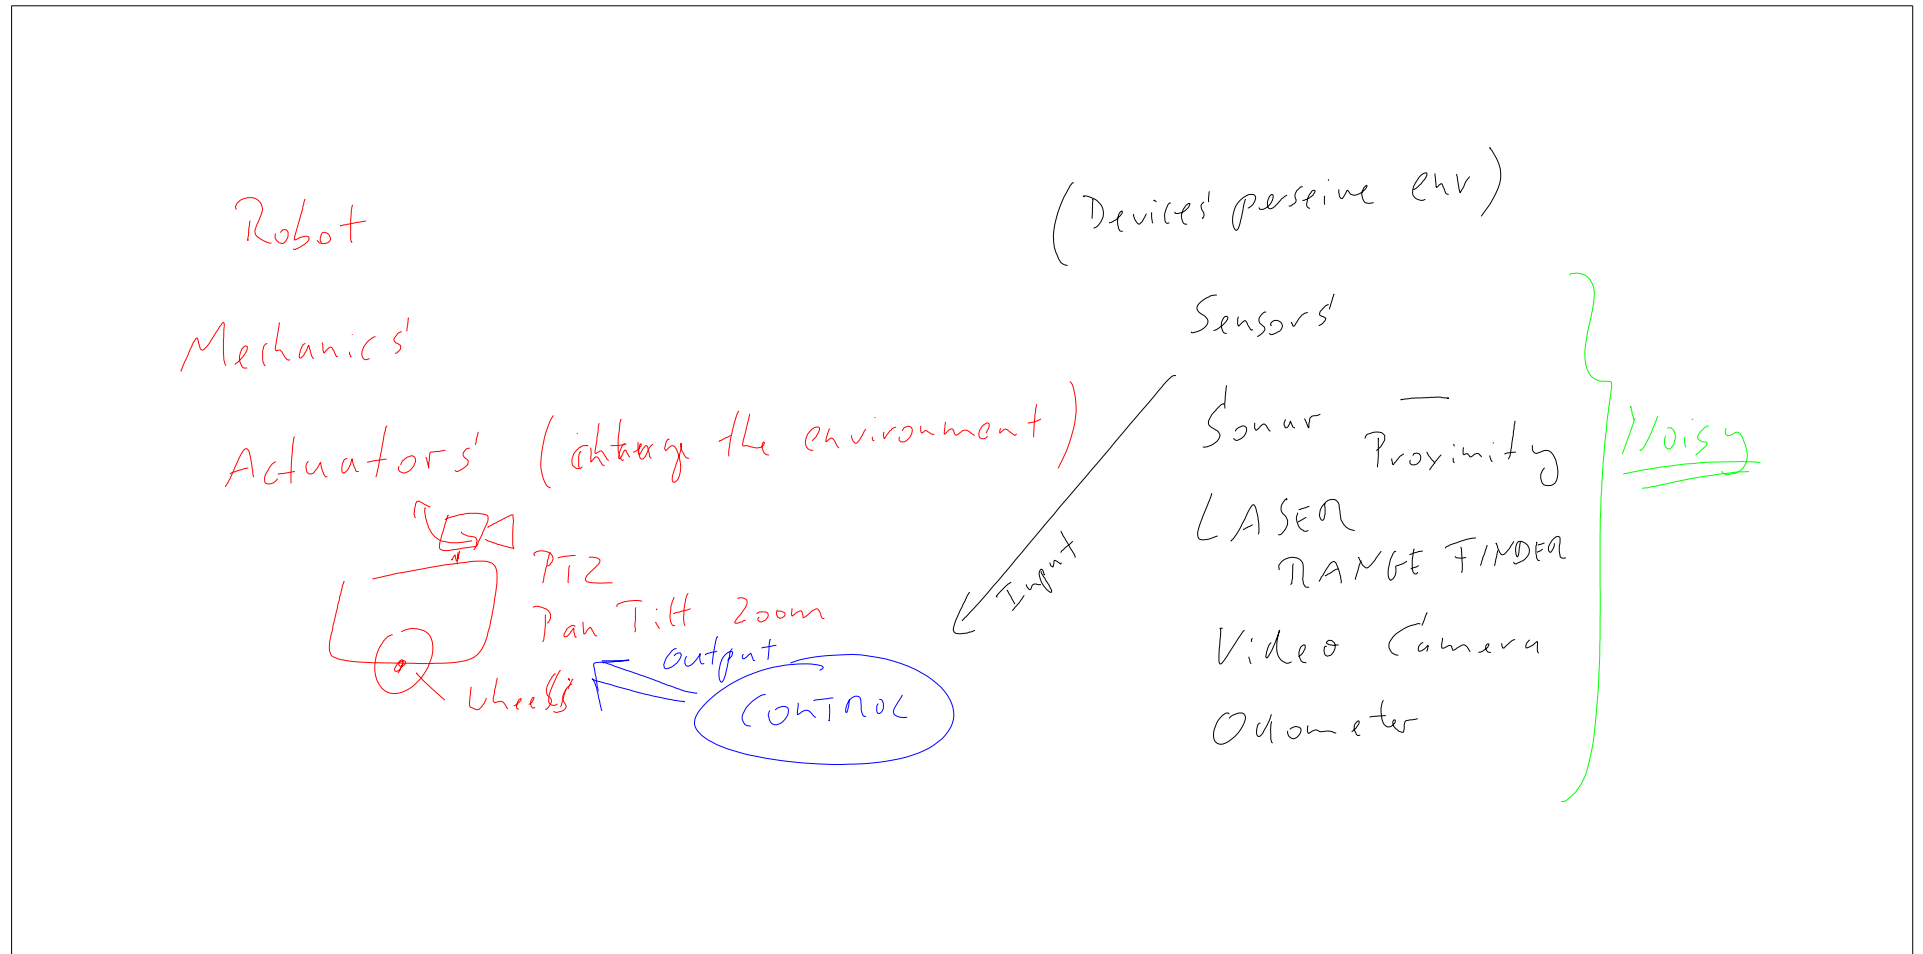 Robot
Mechanics
Actuators (change the environment)
PTZ
Pan Tilt Zoom
wheels
output
CONTROL
Input
(Devices perseive env)
Sensors
Sonar
Proximity
LASER
RANGE FINDER
Video Camera
Odometer
Noisy